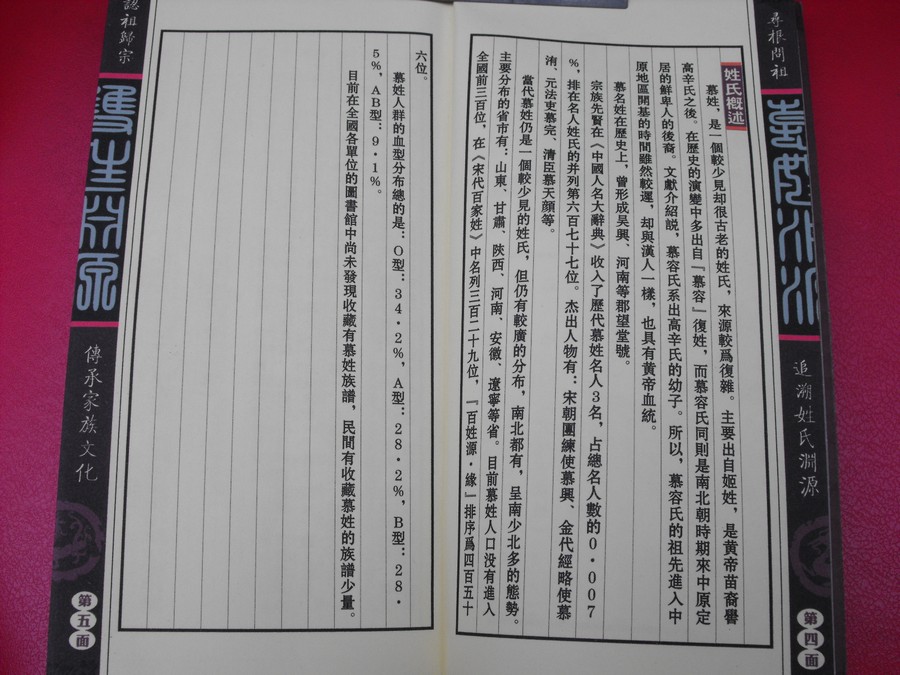 尋根問祖
追溯姓氏淵源
第四面
姓氏概述
慕姓，是一個較少見却很古老的姓氏，來源較爲復雜。主要出自姬姓，是黄帝苗裔嚳
高辛氏之後。在歷史的演變中多出自『慕容』復姓，而慕容氏同則是南北朝時期來中原定
居的鮮卑人的後裔。文獻介紹説，慕容氏系出高辛氏的幼子。所以，慕容氏的祖先進入中
原地區開基的時間雖然較遲，却與漢人一樣，也具有黄帝血統。
慕名姓在歷史上，曾形成吴興、河南等郡望堂號。
宗族先賢在《中國人名大辭典》收入了歷代慕姓名人3名，占總名人數的0·007
%，排在名人姓氏的并列第六百七十七位。杰出人物有：宋朝團練使慕興、金代經略使慕
洧、元法吏慕完、清臣慕天顔等。
當代慕姓仍是一個較少見的姓氏，但仍有較廣的分布，南北都有，呈南少北多的態勢。
主要分布的省市有：山東、甘肅、陝西、河南、安徽、遼寧等省。目前慕姓人口没有進入
全國前三百位，在《宋代百家姓》中名列三百二十九位，『百姓源·緣』排序爲四百五十
六位。
慕姓人群的血型分布總的是：O型：34·2%，A型：28·2%，B型：28·
5%，AB型：9·1%。
目前在全國各單位的圖書館中尚未發現收藏有慕姓族譜，民間有收藏慕姓的族譜少量。
認祖歸宗
傳承家族文化
第五面